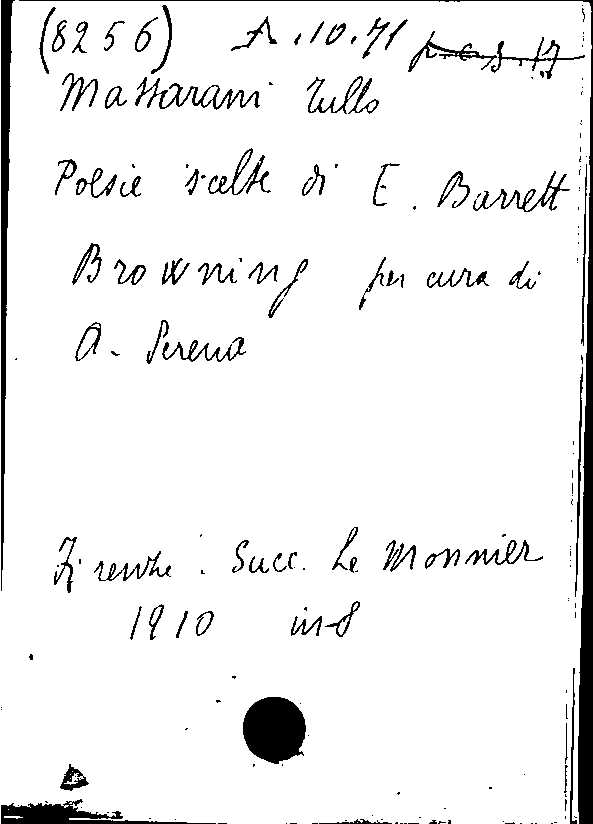 (8256) A.10.71
Massarani Tullo
Poesie scelte di E. Barrett
Browning per cura di
A. Serena
Firenze. Succ. Le Monnier
1910 in-8